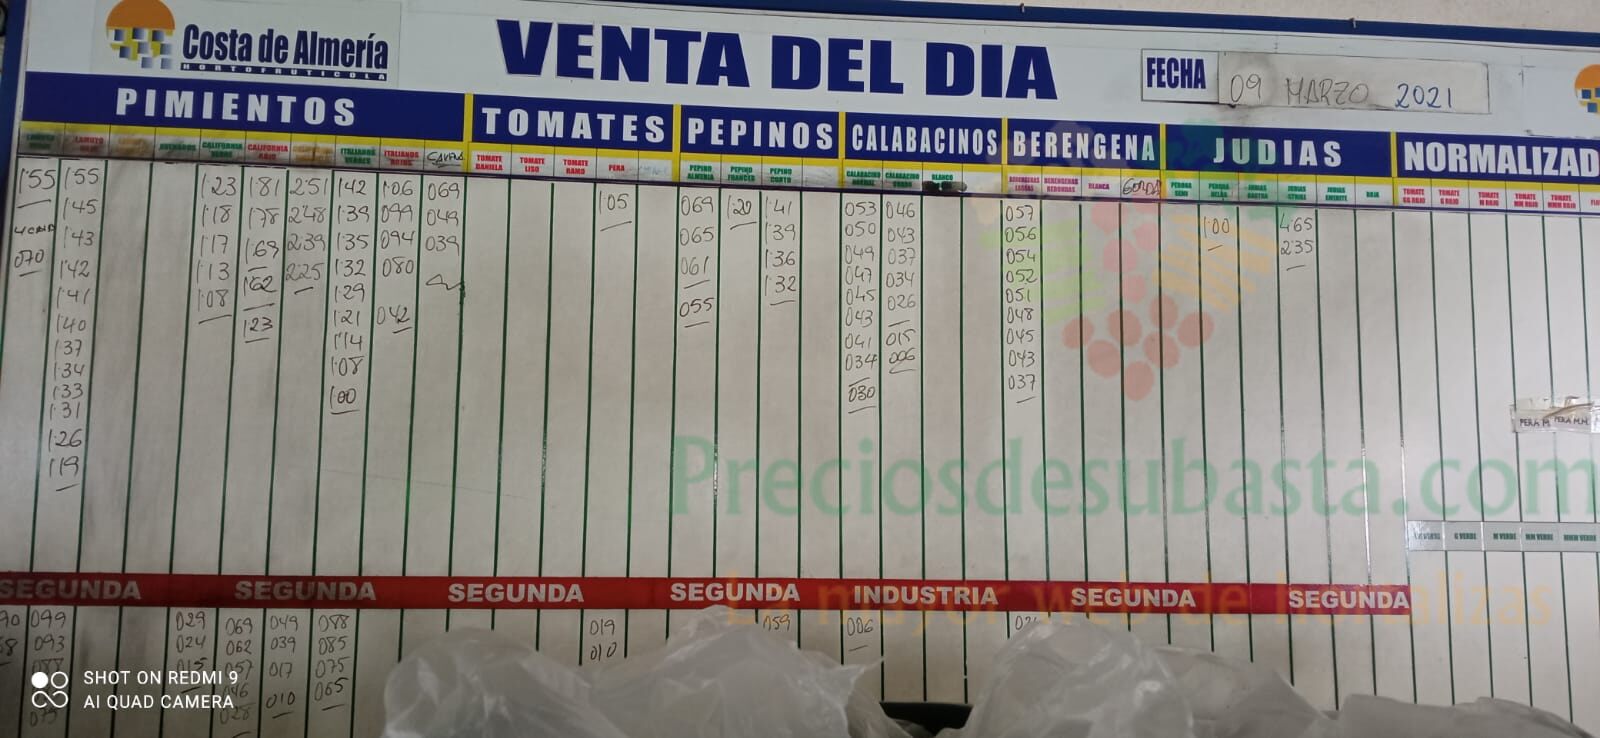 Costa de Almería
HORTOFRUTICOLA
VENTA DEL DIA
FECHA 09 MARZO 2021
PIMIENTOS TOMATES PEPINOS CALABACINOS BERENGENA JUDIAS NORMALIZAD
LAMUYO ROJO CALIFORNIA VERDE CALIFORNIA ROJO ITALIANOS VERDES ITALIANOS ROJOS TOMATE DANIELA TOMATE LISO TOMATE RAMO PERA PEPINO ALMERIA PEPINO FRANCES PEPINO CORTO CALABACINO BLANCO BERENGENAS LARGAS BERENGENAS REDONDAS BLANCA GORDA PERONA PERONA JUDIAS JUDIAS JUDIAS ROJA TOMATE GG ROJO TOMATE G ROJO TOMATE M ROJO TOMATE MM ROJO TOMATE MMM ROJO
1'55 1'55 1'23 1'81 2'51 1'42 1'06 069 1'05 069 1'20 1'41 053 046 057 1'00 4'65
1'45 1'18 1'78 2'48 1'39 099 049 065 1'39 050 043 056 2'35
070 1'43 1'17 1'69 2'39 1'35 094 039 061 1'36 049 037 054
1'42 1'13 1'62 2'25 1'32 080 055 1'32 047 034 052
1'41 1'08 1'23 1'29 042 045 026 051
1'40 1'21 043 015 048
1'37 1'14 041 006 045
1'34 1'08 034 043
1'33 1'00 030 037
1'31
1'26
1'19
PERA M. PERA M.M.
G VERDE M VERDE MM VERDE MMM VERDE
Preciosdesubasta.com
La mayor web de hortalizas
SEGUNDA SEGUNDA SEGUNDA SEGUNDA INDUSTRIA SEGUNDA SEGUNDA
099 029 069 049 088 019 059 006
093 024 062 039 085 010
088 015 057 017 075
046 010 065
075 028
SHOT ON REDMI 9
AI QUAD CAMERA